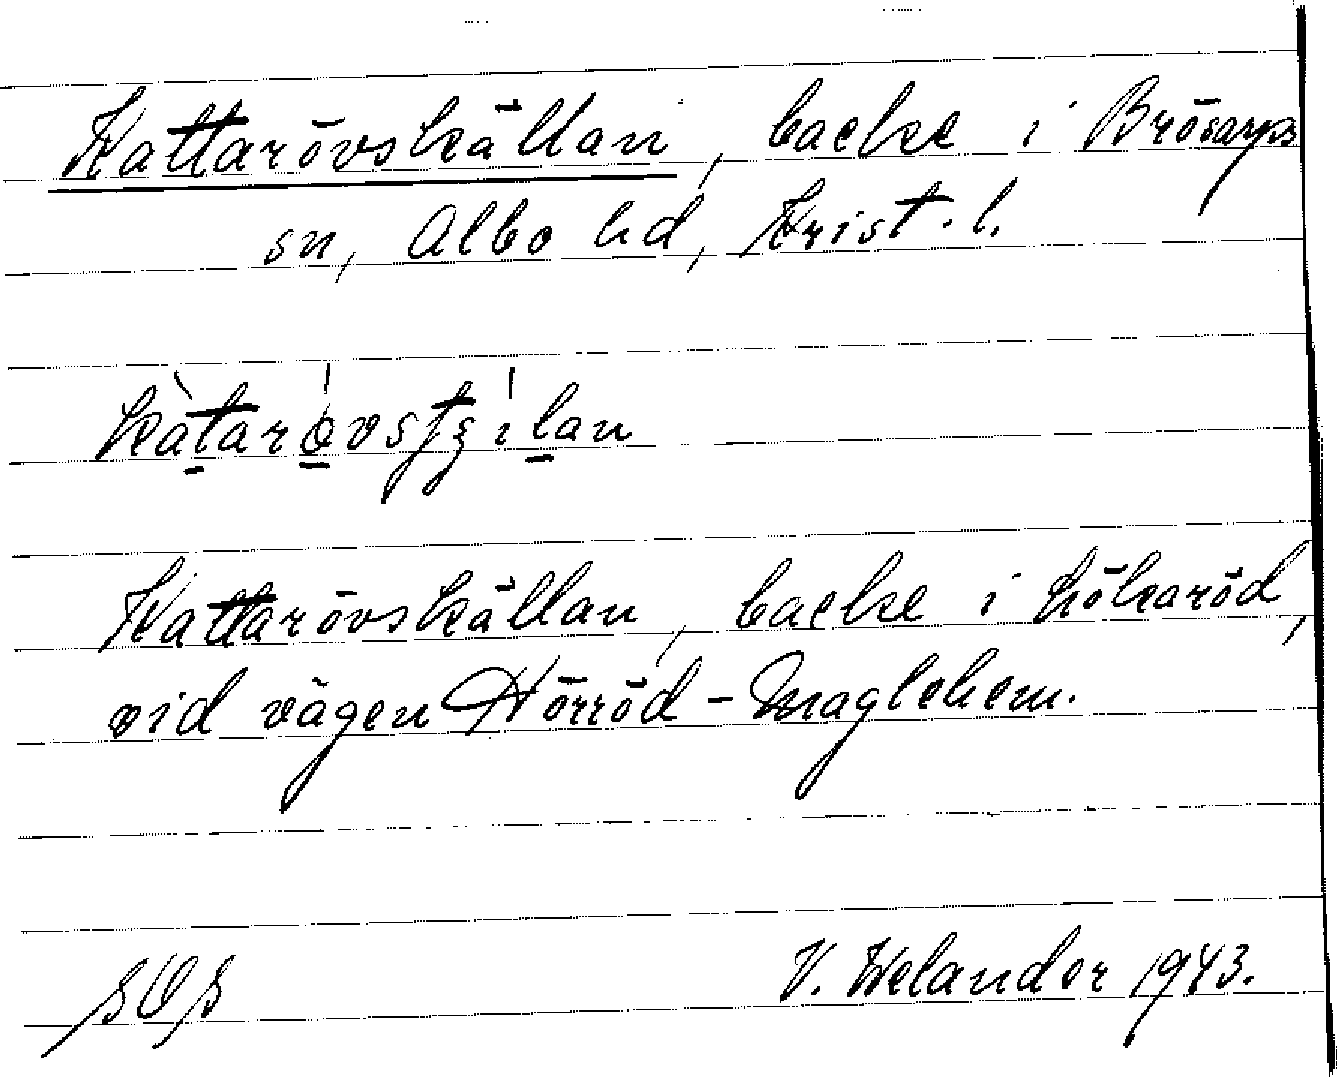 Kattarövskällan, backe i Brösarps
sn, Albo hd, Krist. l.
Kattarövskällan, backe i Kölkaröd,
vid vägen Hörröd - Maglehem.
V. Welander 1943.